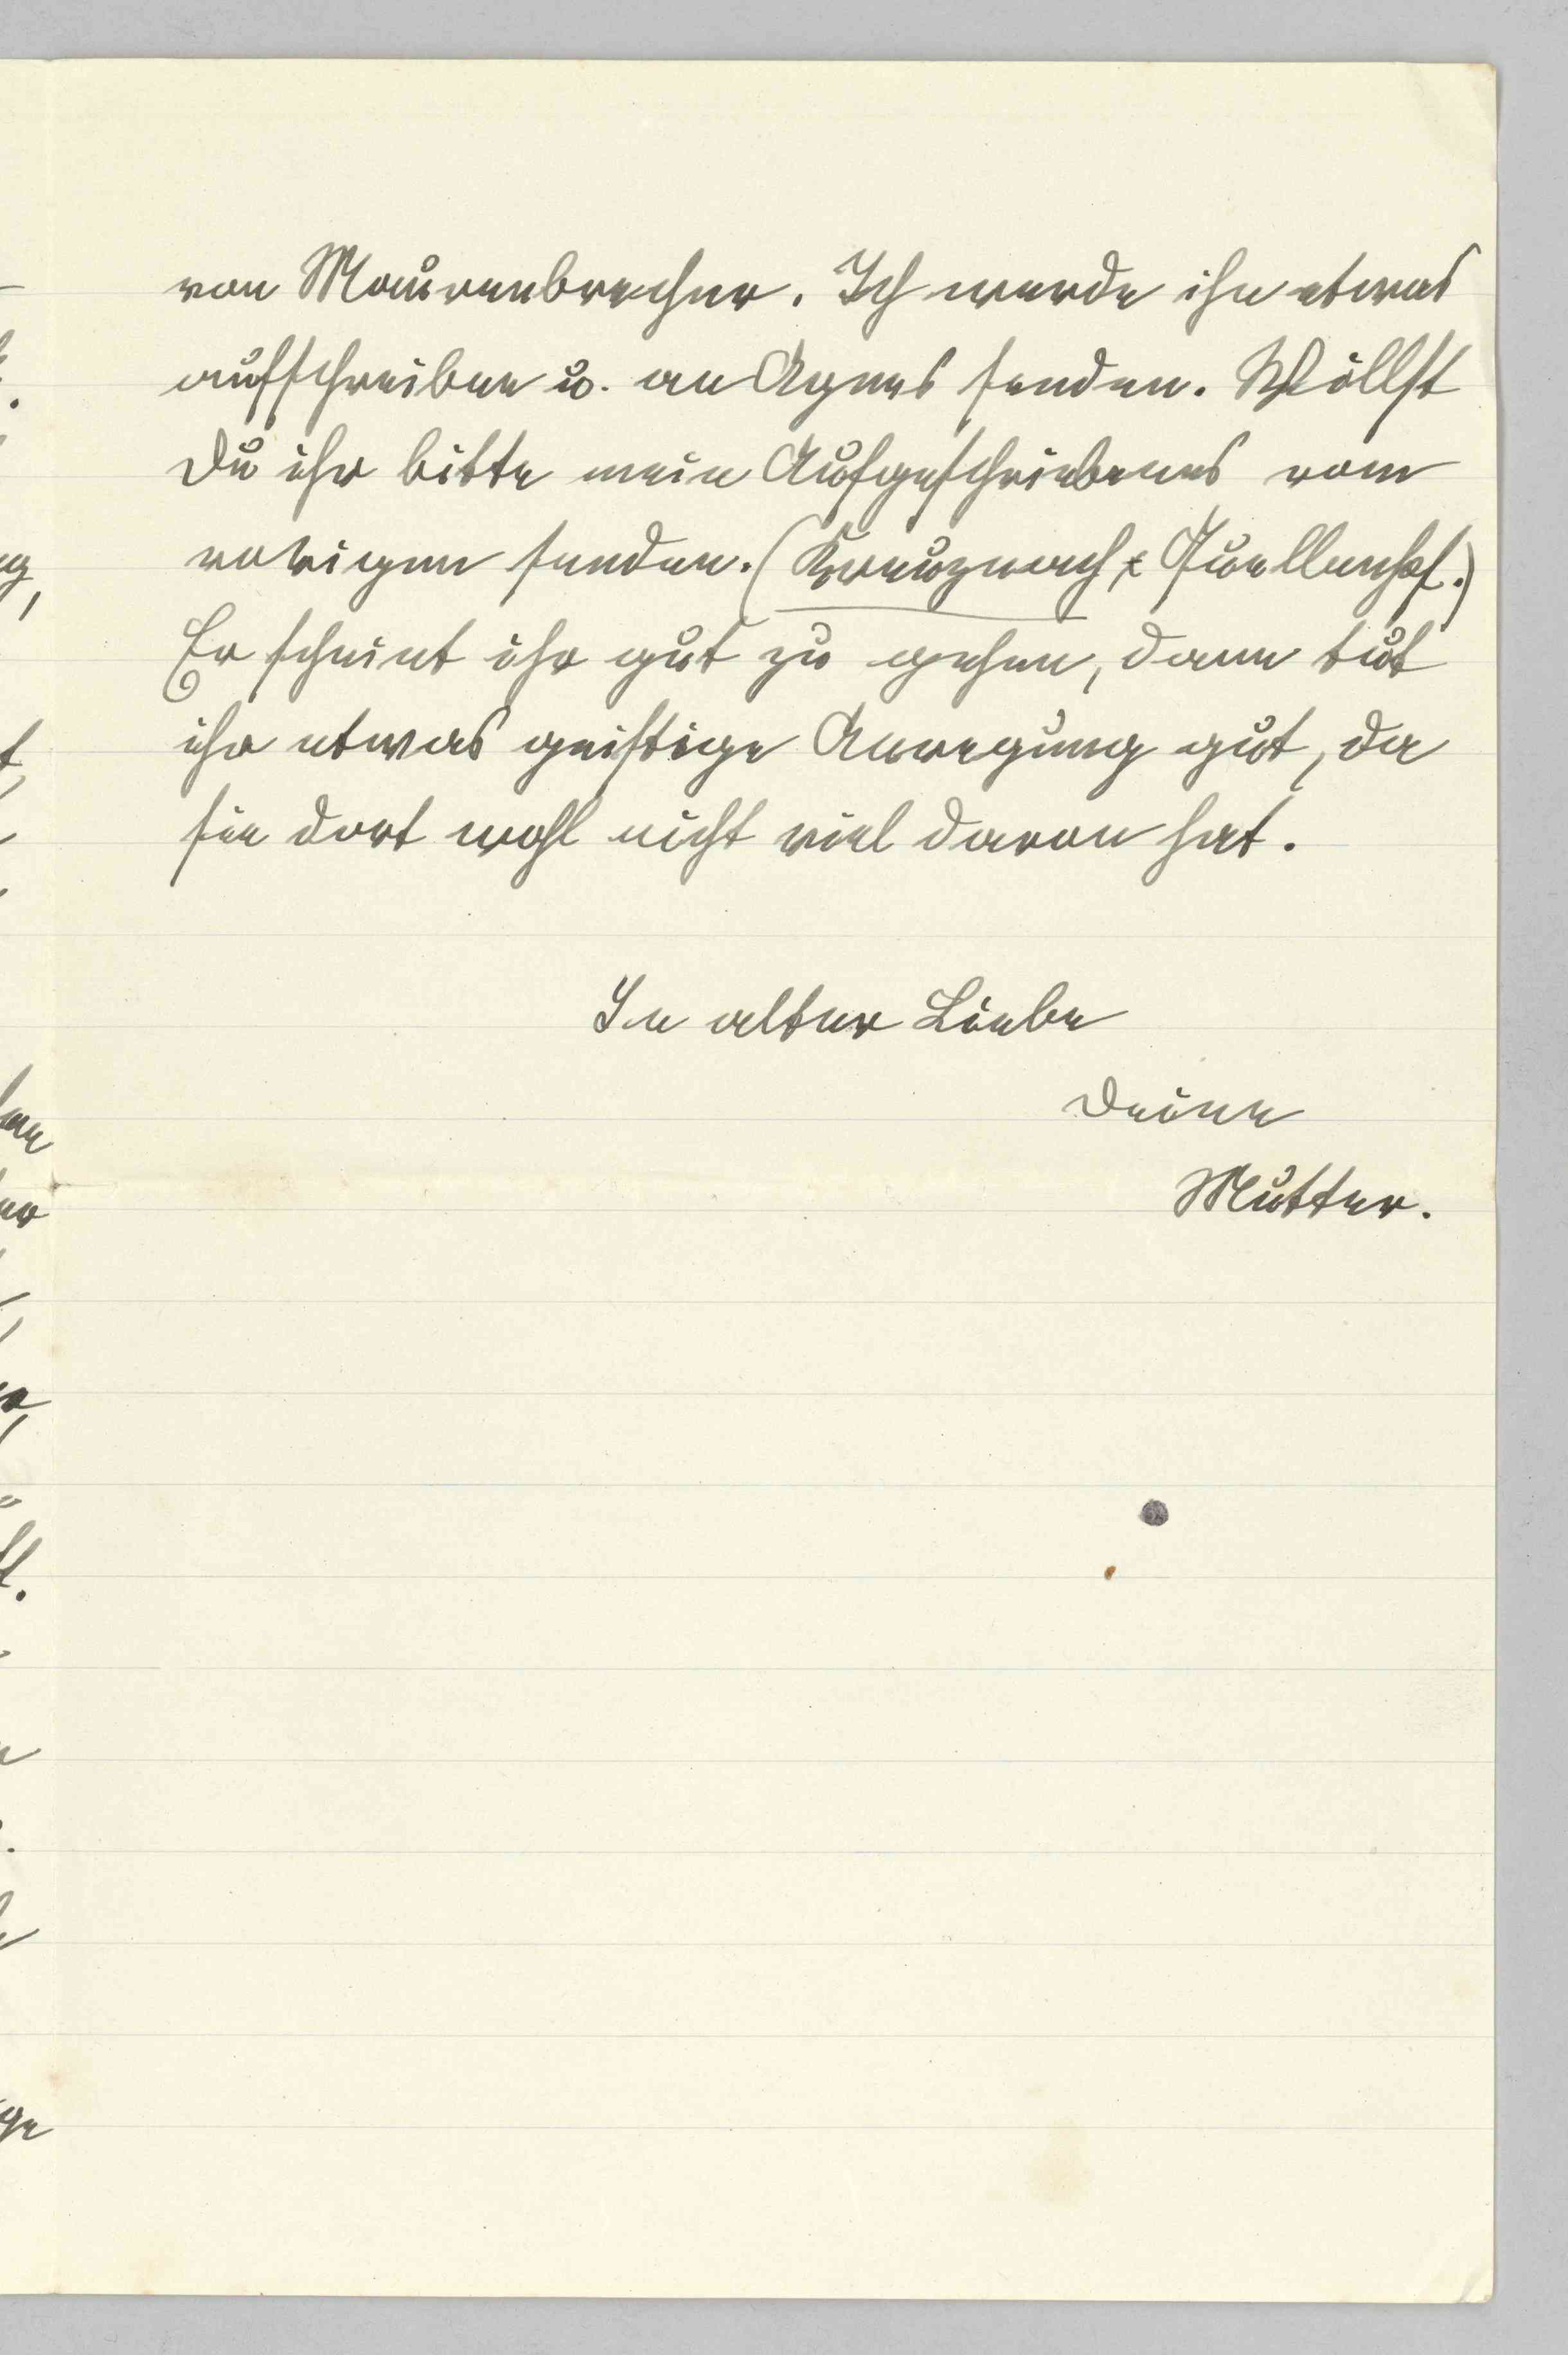 von Maurenbrecher. Ich werde ihn etwas
aufschreiben u. an Agnes senden. Wollst
Du ihr bitte mein Aufgeschriebenes vom
vorigen senden. (Kreuznach, Quellenhof.)
Er scheint ihr gut zu gehen, dann tut
ihr etwas geistige Anregung gut, da
sie dort wohl nicht viel davon hat.
In alter Liebe
Deine
Mutter.